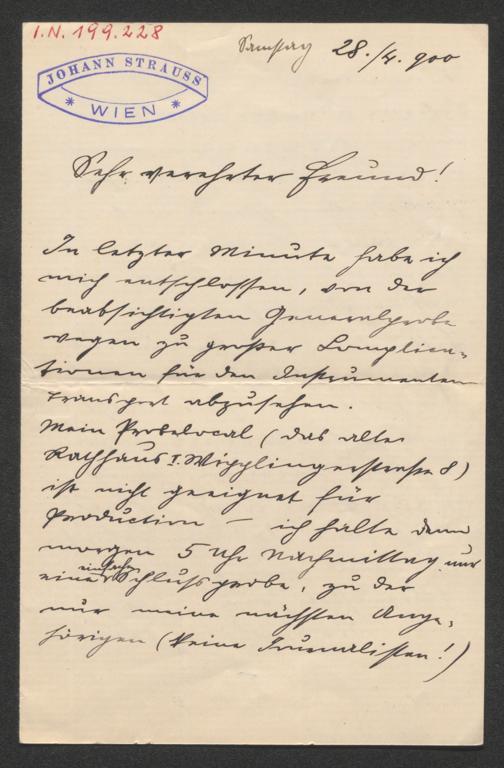 I.N. 199.228
JOHANN STRAUSS
* WIEN *
Samstag 28./4. 900
Sehr verehrter Freund!
In letzter Minute habe ich
mich entschlossen, von der
beabsichtigten Generalprobe
wegen zu großer Complica-
tionen für den Instrumenten
transport abzusehen.
Mein Probelocal (das alte
Rathhaus I. Wipplingerstraße 8)
ist nicht geeignet für
Production – ich halte denn
morgen 5 Uhr Nachmittag nur
eine einfache Schlußprobe, zu der
nur meine nächsten Ange-
hörigen (keine Journalisten!)